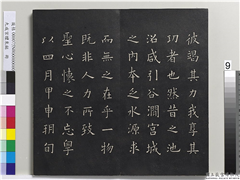 彼竭其力我享其
功者也然昔之池
沼咸引谷澗宮城
之內本乏水源求
而無之在乎一物
既非人力所致
聖心懷之不忘粵
以四月甲申朔旬
9